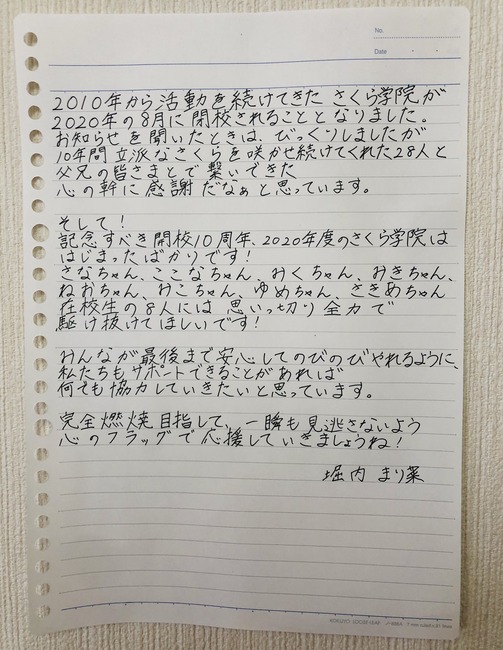 No.
Date
2010年から活動を続けてきた さくら学院が
2020年の8月に閉校されることとなりました。
お知らせを聞いたときは、びっくりしましたが
10年間立派なさくらを咲かせ続けてくれた28人と
父兄の皆さまとで繋いできた
心の幹に感謝だなぁと思っています。
そして！
記念すべき開校10周年、2020年度のさくら学院は
はじまったばかりです！
さなちゃん、ここなちゃん、みくちゃん、みきちゃん、
ねおちゃん、みこちゃん、ゆめちゃん、さきあちゃん
在校生の8人には思いっ切り全力で
駆け抜けてほしいです！
みんなが最後まで安心してのびのびやれるように、
私たちもサポートできることがあれば
何でも協力していきたいと思っています。
完全燃焼目指して、一瞬も見逃さないよう
心のフラッグで応援していきましょうね！
堀内 まり菜
KOKUYO LOOSE-LEAF